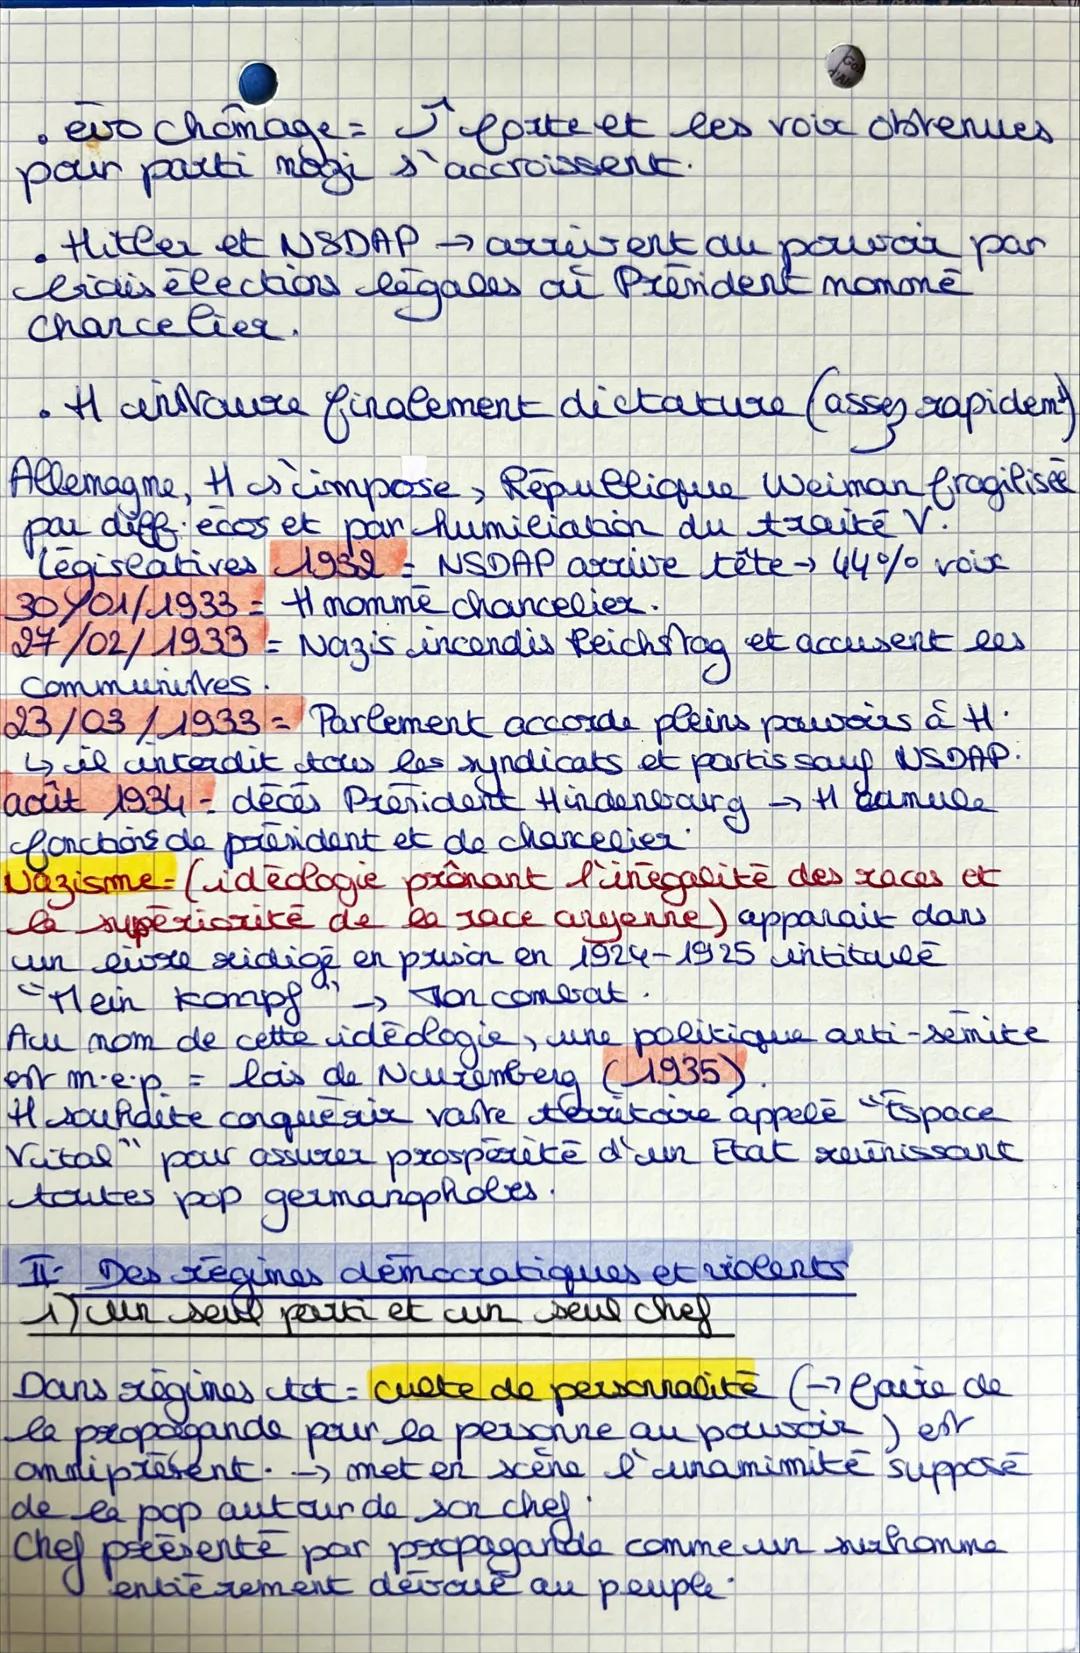 . évo chômage = forte et les voix obtenues
pour parti nazi s'accroissent.
. Hitler et NSDAP → arrivent au pouvoir par
biais élections légales où Président nommé
chancelier.
. H instaure finalement dictature (assez rapidemt)
Allemagne, H s'impose, République Weiman fragilisée
par diff. écos et par humiliation du traité V.
Législatives 1932 = NSDAP arrive tête → 44% voix
30/01/1933 = H nommé chancelier.
27/02/1933 = Nazis incendis Reichstag et accusent les
communistes.
23/03/1933 = Parlement accorde pleins pouvoirs à H.
↳ il interdit tous les syndicats et partis sauf NSDAP.
août 1934 = décés Président Hindenbourg → H cumule
fonctions de président et de chancelier.
Nazisme = (idéologie prônant l'inégalité des races et
la supériorité de la race aryenne) apparait dans
un livre rédigé en prison en 1924-1925 intitulé
"Mein Kampf" → Mon combat.
Au nom de cette idéologie, une politique anti-sémite
est m.e.p. = lois de Nuremberg (1935).
H souhaite conquérir vaste territoire appelé "Espace
Vital" pour assurer prospérité d'un Etat réunissant
toutes pop germanophobes.
II- Des régimes démocratiques et violents
1) Un seul parti et un seul chef
Dans régimes tot = culte de personnalité (→ faire de
la propagande pour la personne au pouvoir) est
omniprésent. → met en scène l'unamimité supposé
de la pop autour de son chef.
Chef présenté par propagande comme un surhomme
entièrement dévoué au peuple.